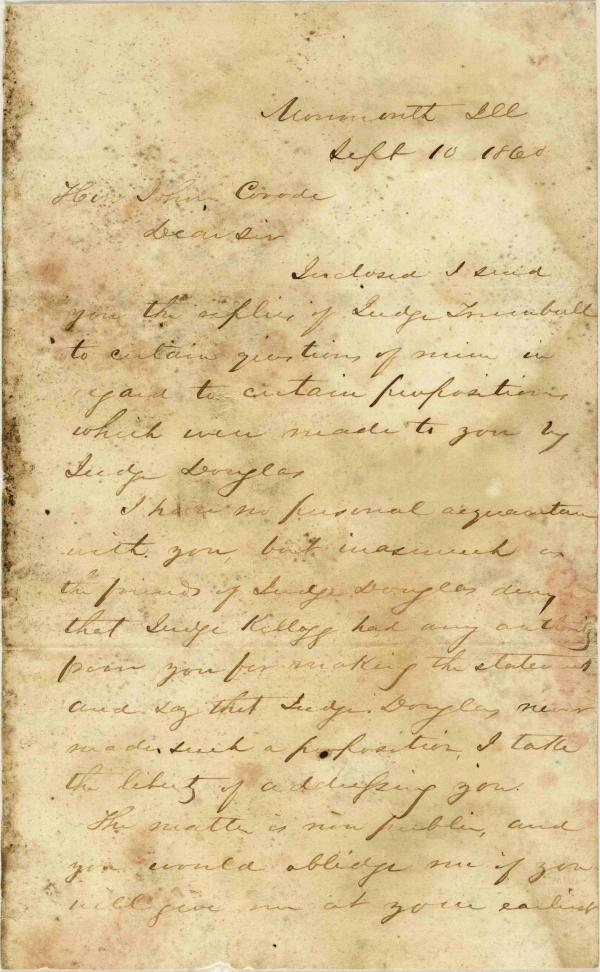 Monmouth Ill
Sept 10 1860
Hon John Covode
Dear Sir
Inclosed I send
you the replies of Judge Trumbull
to certain questions of mine in
regard to certain propositions
which were made to you by
Judge Douglas
I have no personal acquaintan
with you, but inasmuch as
the friends of Judge Douglas deny
that Judge Kellogg had any
from you for making the statement
and say that Judge Douglas never
made such a proposition, I take
the liberty of addressing you.
The matter is now public, and
you would oblidge me if you
will give me at your earliest